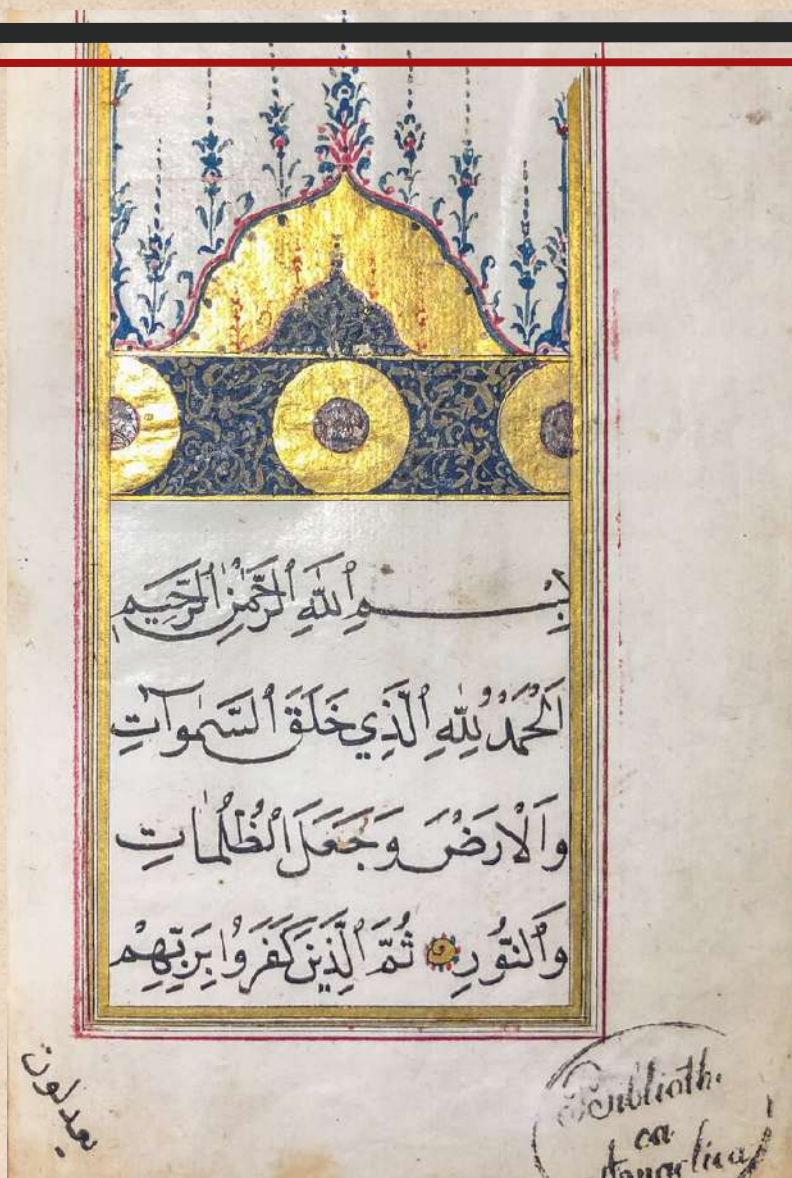 بِسْمِ ٱللَّهِ ٱلرَّحْمٰنِ ٱلرَّحِيمِ
اَلْحَمْدُ لِلّٰهِ ٱلَّذِي خَلَقَ ٱلسَّمٰوَاتِ
وَٱلْاَرْضَ وَجَعَلَ ٱلظُّلُمَاتِ
وَٱلنُّورِ ثُمَّ ٱلَّذِينَ كَفَرُوا بِرَبِّهِمْ
يعدلون
Biblioth.
ca
Angelica